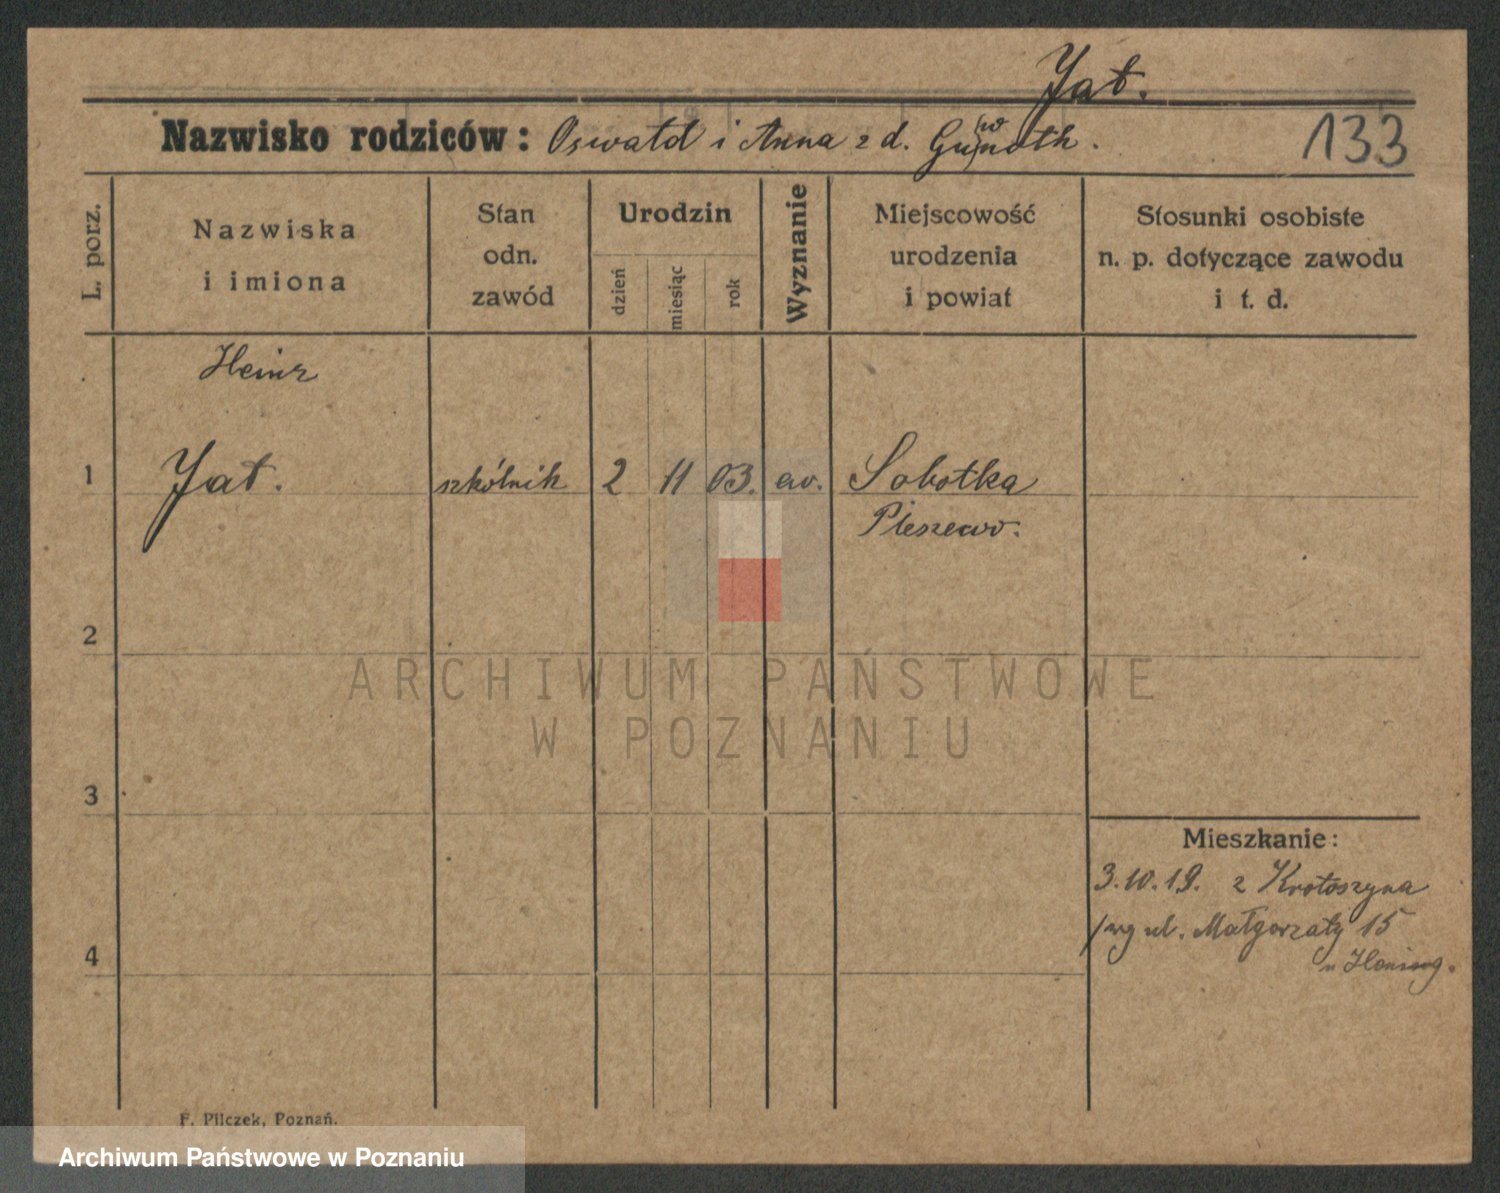 Jat.
Nazwisko rodziców: Oswald i Anna z d. Gunoth.
w
133
L. porz.
Nazwiska
i imiona
Stan
odn.
zawód
Urodzin
dzień
miesiąc
rok
Wyznanie
Miejscowość
urodzenia
i powiat
Stosunki osobiste
n. p. dotyczące zawodu
i t. d.
Heinz
1 Jat. szkólnik 2 11 03. ew. Sobotka
Pleszewo.
2
ARCHIWUM PAŃSTWOWE
W POZNANIU
3
Mieszkanie:
3.10.19. z Krotoszyna
ul. Małgorzaty 15
4
F. Pilczek, Poznań.
Archiwum Państwowe w Poznaniu